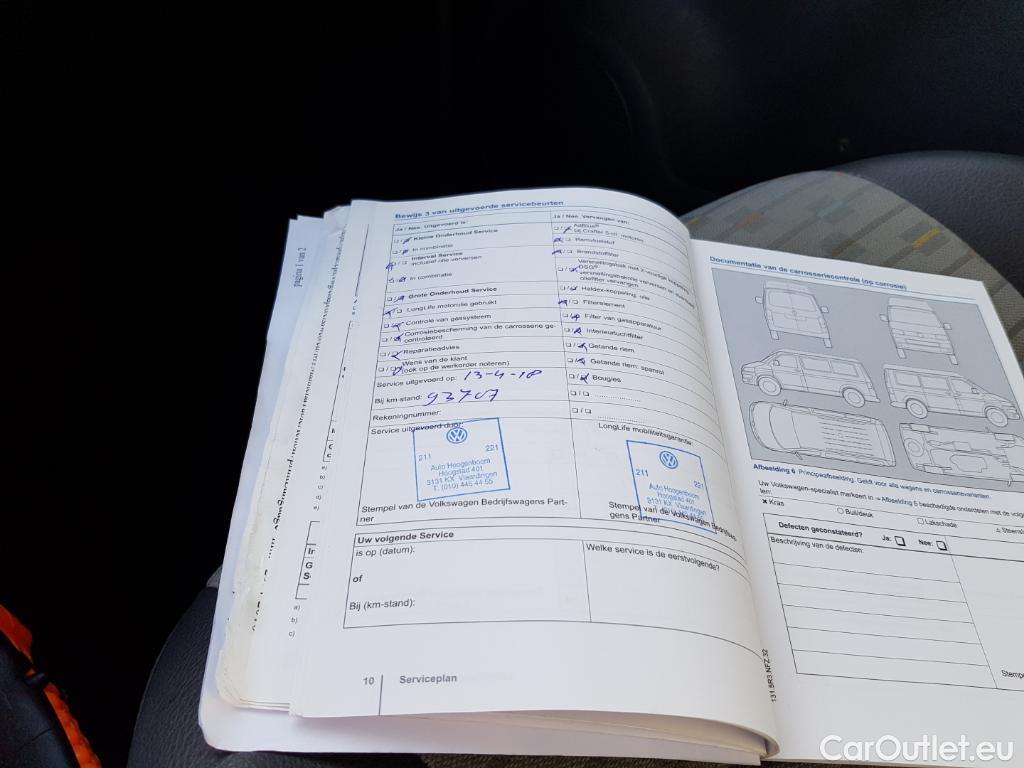 pagina 1 van 2
Bewijs 3 van uitgevoerde servicebeurten
Ja / Nee. Uitgevoerd is:
Kleine Onderhoud Service
In combinatie
Interval Service
inclusief olie verversen
In combinatie
Grote Onderhoud Service
LongLife motorolie gebruikt
Controle van gassysteem
Corrosiebescherming van de carrosserie ge-
controleerd
Reparatieadvies
Wens van de klant
(ook op de werkorder noteren)
Service uitgevoerd op: 13-4-18
Bij km-stand: 93707
Rekeningnummer:
Service uitgevoerd door:
211 221
Auto Hoogenboom
Hoogstad 401
3131 KX Vlaardingen
T. (010) 445 44 55
Stempel van de Volkswagen Bedrijfswagens Part-
ner
Ja / Nee. Vervangen van:
AdBlue®
bij Crafter 5-cil. motoren
Remvloeistof
Brandstoffilter
DSG®
versnellingsbakolie verversen en eventueel
oliefilter vervangen
Haldex-koppeling: olie
Filterelement
Filter van gasapparatuur
Interieurluchtfilter
Getande riem
Getande riem: spanrol
Bougies
LongLife mobiliteitsgarantie:
211 221
Auto Hoogenboom
Hoogstad 401
3131 KX Vlaardingen
Stempel van de Volkswagen Bedrijfswa-
gens Partner
Uw volgende Service
is op (datum):
of
Bij (km-stand):
Welke service is de eerstvolgende?
10 Serviceplan
Documentatie van de carrosseriecontrole (op corrosie)
Afbeelding 6 Principeafbeelding. Geldt voor alle wagens en carrosserievarianten.
Uw Volkswagen-specialist markeert in ⇒ Afbeelding 6 beschadigde onderdelen met de volg
len:
x Kras
Buil/deuk
Lakschade
Steens
Defecten geconstateerd? Ja: Nee:
Beschrijving van de defecten:
Stempe
131.5R3.NFZ.32
CarOutlet.eu